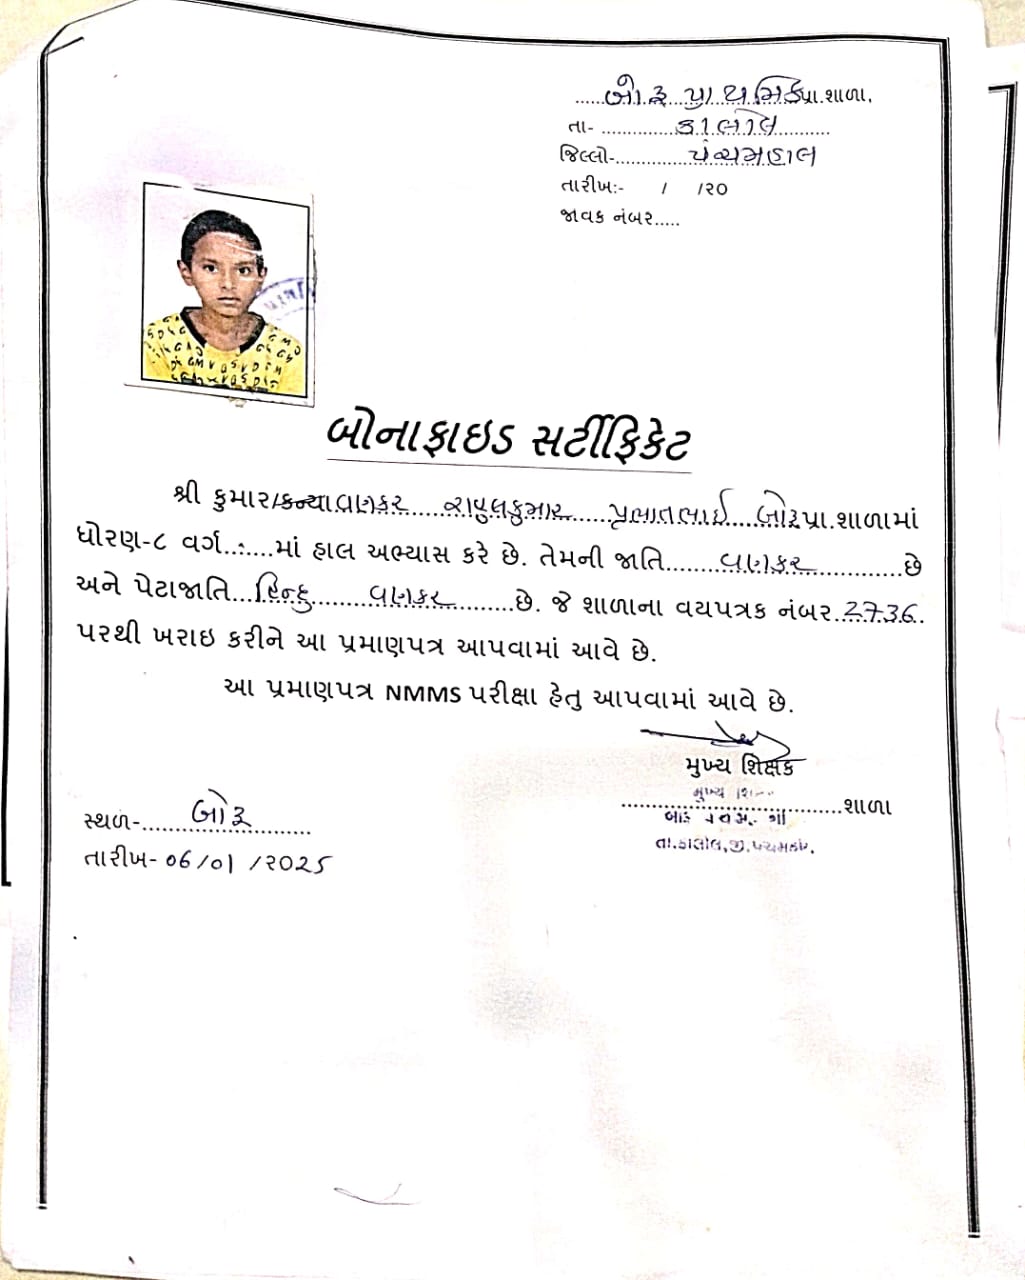 બોરૂ પ્રાથમિક પ્રા.શાળા.
તા- કાલોલ
જિલ્લો- પંચમહાલ
તારીખ:- / /૨૦
જાવક નંબર.....
બોનાફાઇડ સર્ટીફિકેટ
શ્રી કુમાર/કન્યા વણકર રાહુલકુમાર પ્રભાતભાઈ બોરૂ પ્રા.શાળામાં
ધોરણ-૮ વર્ગ..:....માં હાલ અભ્યાસ કરે છે. તેમની જાતિ વણકર છે
અને પેટાજાતિ હિન્દુ વણકર છે. જે શાળાના વયપત્રક નંબર 2736
પરથી ખરાઇ કરીને આ પ્રમાણપત્ર આપવામાં આવે છે.
આ પ્રમાણપત્ર NMMS પરીક્ષા હેતુ આપવામાં આવે છે.
મુખ્ય શિક્ષક
મુખ્ય
શાળા
તા.કાલોલ,જી.પંચમહાલ.
સ્થળ- બોરૂ
તારીખ- 06/01/૨૦25